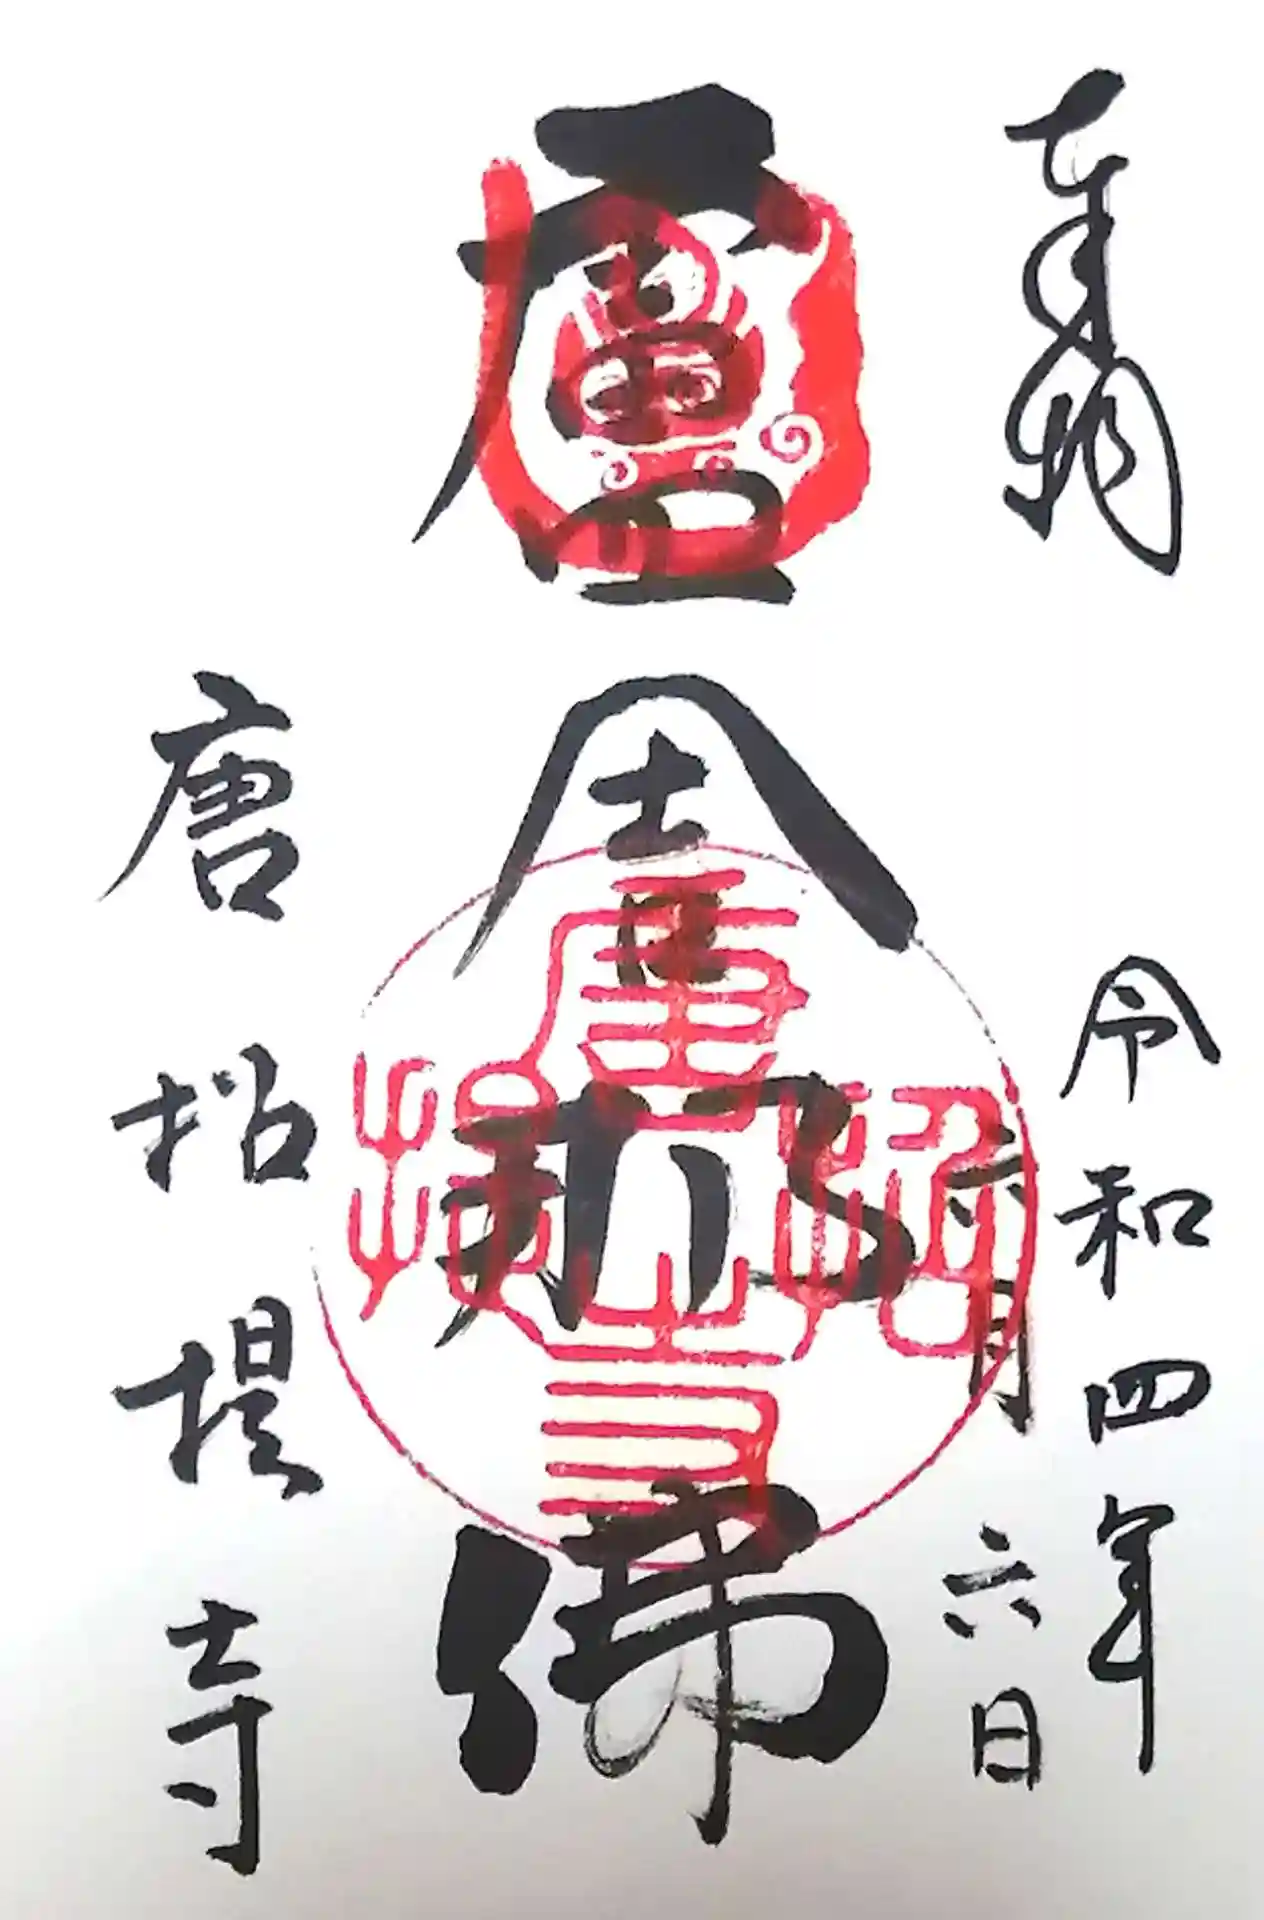 奉拝
令和四年
六月六日
盧舎那佛
唐招提寺
唐招提寺